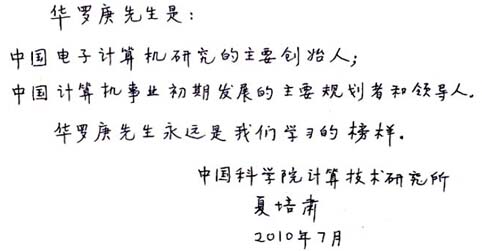 华罗庚先生是：
中国电子计算机研究的主要创始人；
中国计算机事业初期发展的主要规划者和领导人。
华罗庚先生永远是我们学习的榜样。
中国科学院计算技术研究所
夏培肃
2010年7月